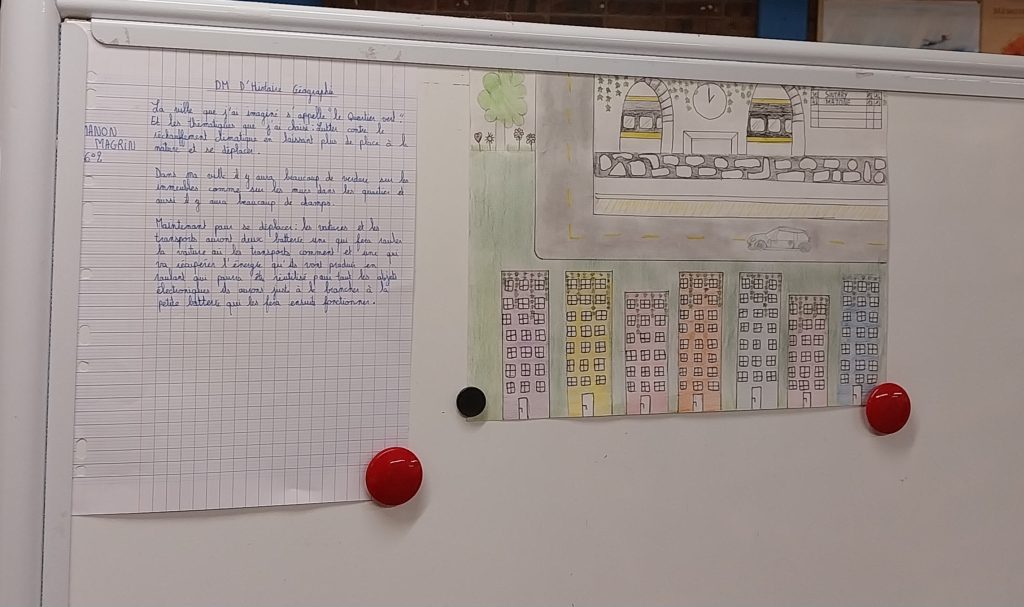 DM D'Histoire Géographe
La ville que j'ai imaginé s'appelle "le Quartier vert".
Et les thématiques que j'ai choisi: Lutter contre le
réchauffement limatique en laissant plus de place à la
nature et se déplacer.
MANON
MAGRIN
6°2
Dans ma ville il y aura beaucoup de verdure sur les
immeubles comme sur les murs dans les quartier et
aussi il y aura beaucoup de champs.
Maintenant pour se déplacer: les voitures et les
transports auront deux batterie une qui fera rouler
la voiture ou les transports comment et une qui
va récupérer l'énergie qu'ils vont produir en
roulant qui pourra être réutilisé pour tout les objets
électroniques ils auront juste à le brancher à la
petite batterie qui les fera ensuite fonctionner.